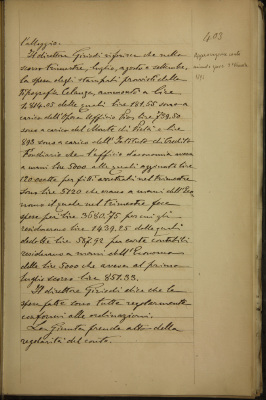 403
Vallaggio.
Il direttore Girioli riferisce che nello
scorso trimestre, luglio, agosto e settembre
la spesa degli stampati, provvisti dalla
tipografia Celanza, ammontò a lire
delle quali lire 181.55 sono a
carico dell'Opera Uffizio Pio, lire
sono a carico del Monte di Pietà e lire
893 sono a carico dell'Istituto di Credito
Fondiario che l'ufficio d'economia aveva
a mani lire 5000 alle quali aggiunte lire
120 esatte per fitti arretrati nel trimestre
sono lire 5120 che erano a mani dell'Eco
nomo il quale nel trimestre fece
spese per lire 3680,75 per cui gli
residuarono lire 1439.25 dalle quali
dedotte lire 581.92 per carte contabili
residuano a mani dell'Economo
delle lire 5000 che aveva al primo
luglio scorso lire 857.33.
Il direttore Girioli dice che le
spese fatte sono tutte regolarmente
conformi alle ordinazioni.
La Giunta prende atto della
regolarità del conto.